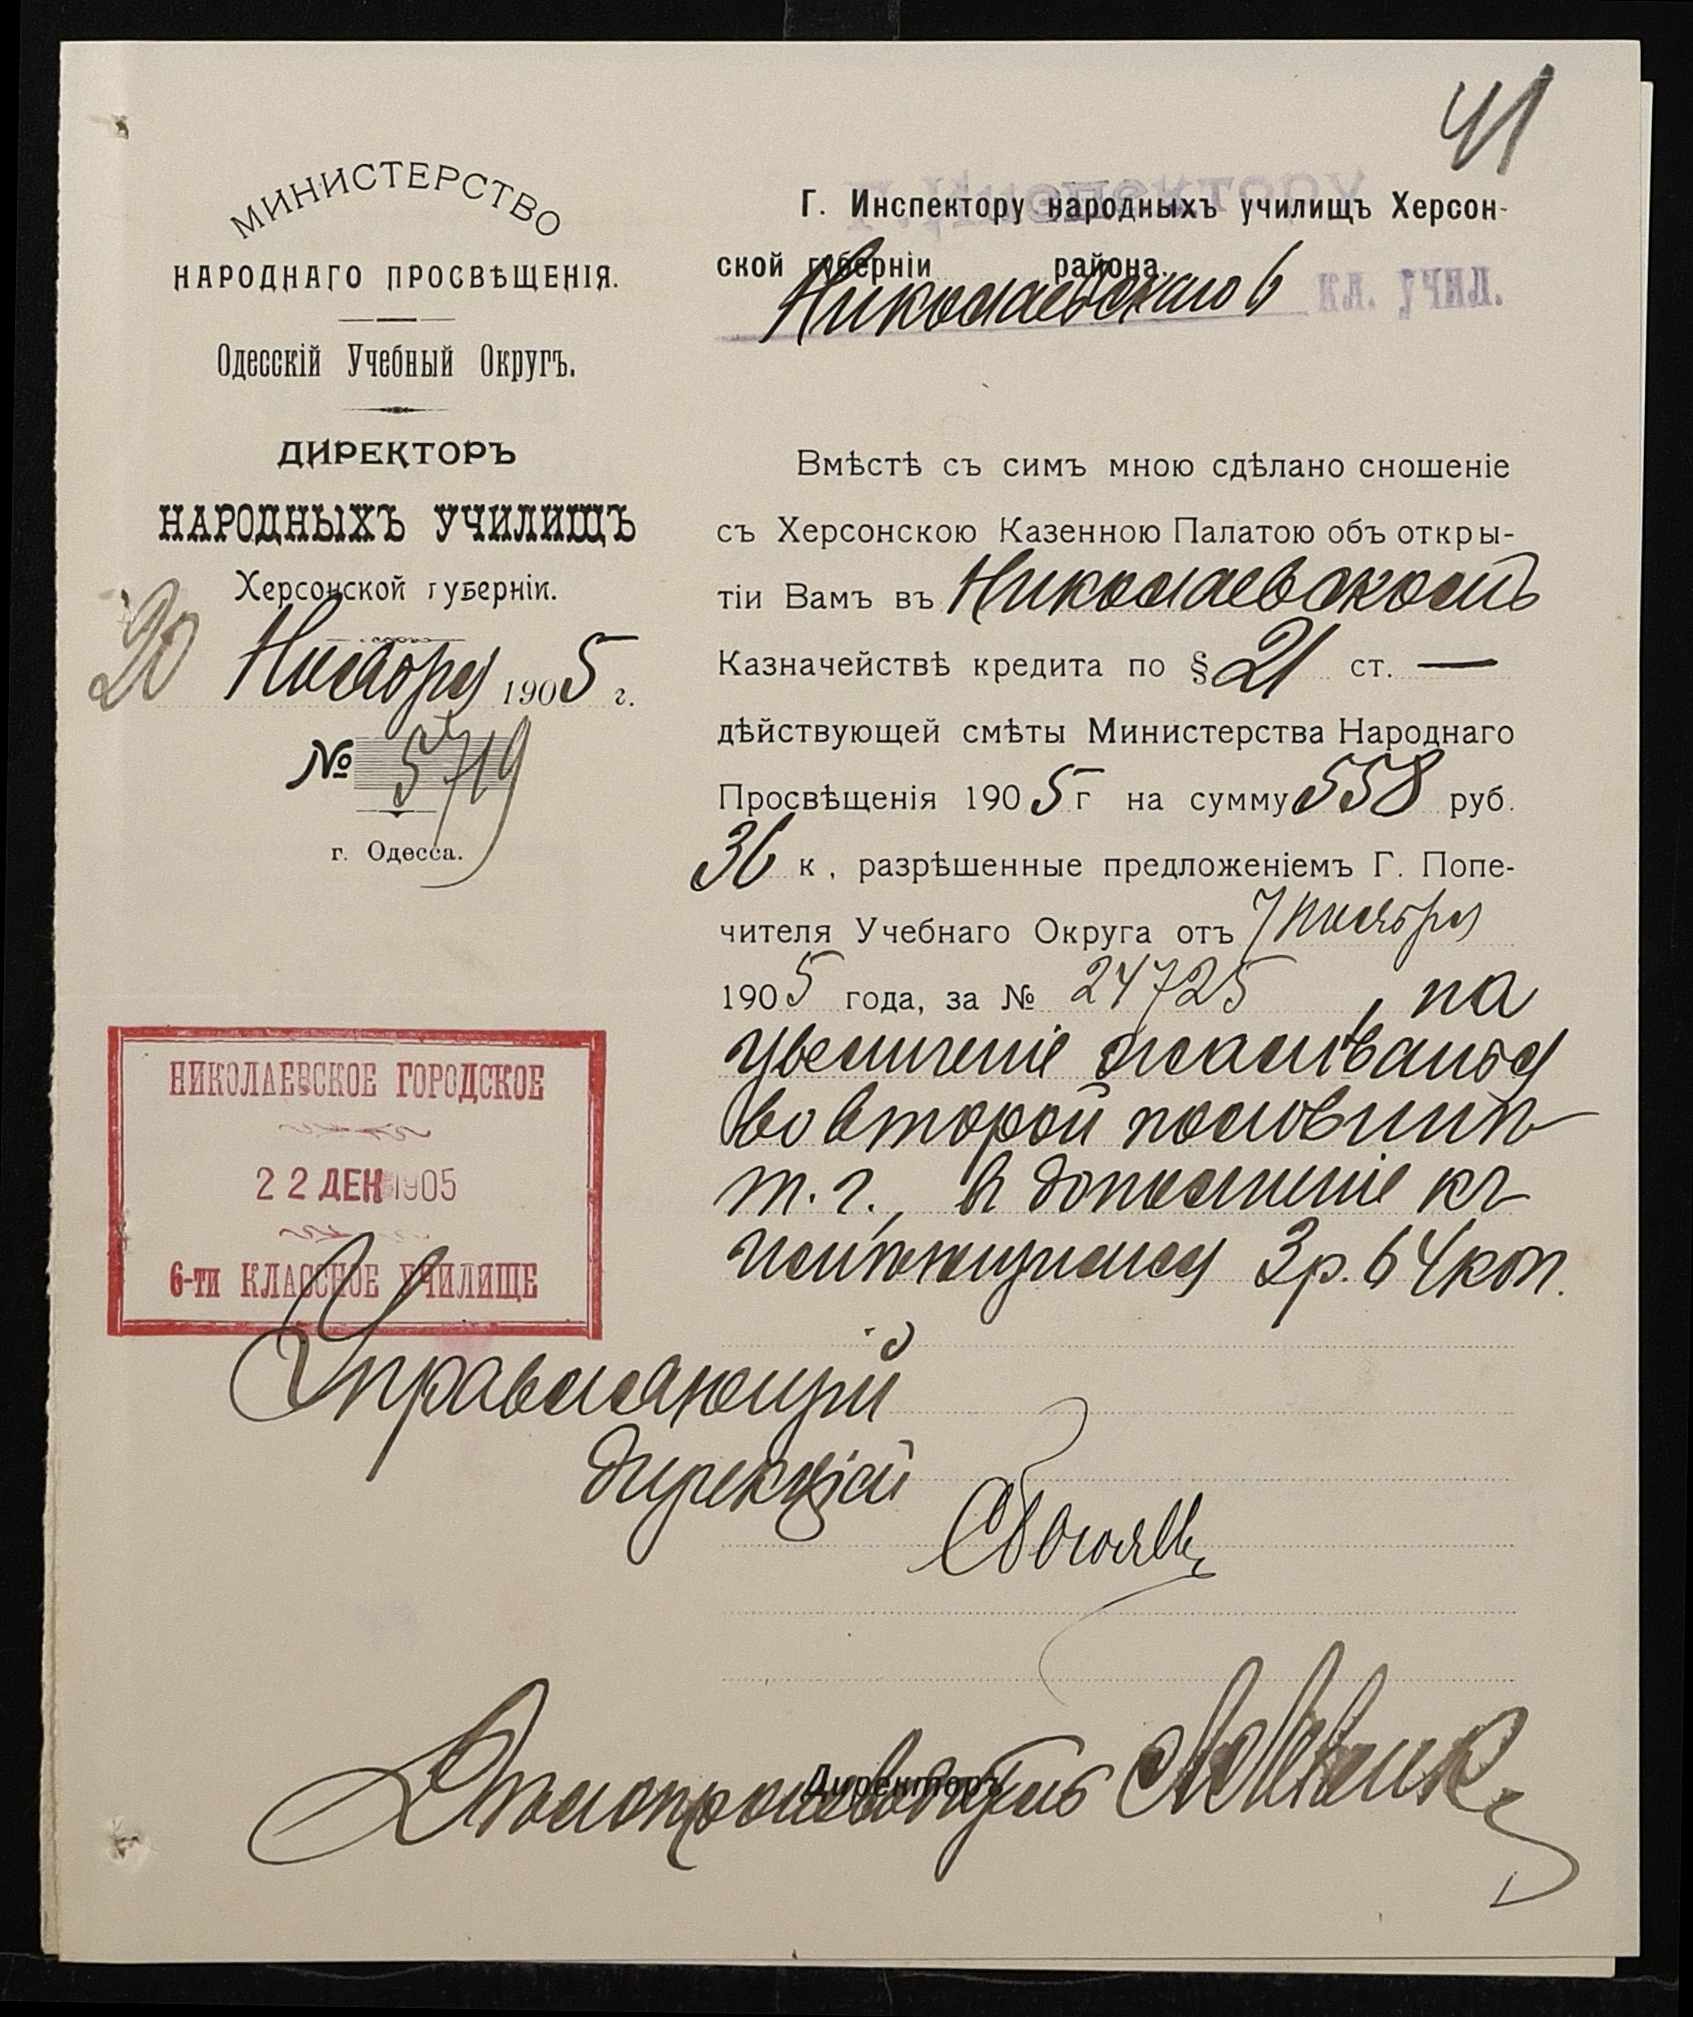 41
МИНИСТЕРСТВО
НАРОДНАГО ПРОСВѢЩЕНІЯ.
Одесскій Учебный Округъ.
ДИРЕКТОРЪ
НАРОДНЫХЪ УЧИЛИЩЪ
Херсонской губерніи.
20 Ноября 1905 г.
№ 5719
г. Одесса.
НИКОЛАЕВСКОЕ ГОРОДСКОЕ
22 ДЕК 1905
6-ти КЛАССНОЕ УЧИЛИЩЕ
Г. Инспектору народныхъ училищъ Херсон-
ской губерніи района.
Николаевскаго 6 кл. учил.
Вмѣстѣ съ симъ мною сдѣлано сношеніе
съ Херсонскою Казенною Палатою объ откры-
тіи Вамъ въ Николаевскомъ
Казначействѣ кредита по § 21 ст. —
дѣйствующей смѣты Министерства Народнаго
Просвѣщенія 1905 г на сумму 558 руб.
36 к, разрѣшенные предложеніемъ Г. Попе-
чителя Учебнаго Округа отъ 7 ноября
1905 года, за № 24725, на
увеличеніе жалованья
во второй половинѣ
т. г., въ дополненіе къ
3 р. 64 коп.
Управляющій
дирекціей
Директоръ
Дѣлопроизводитель